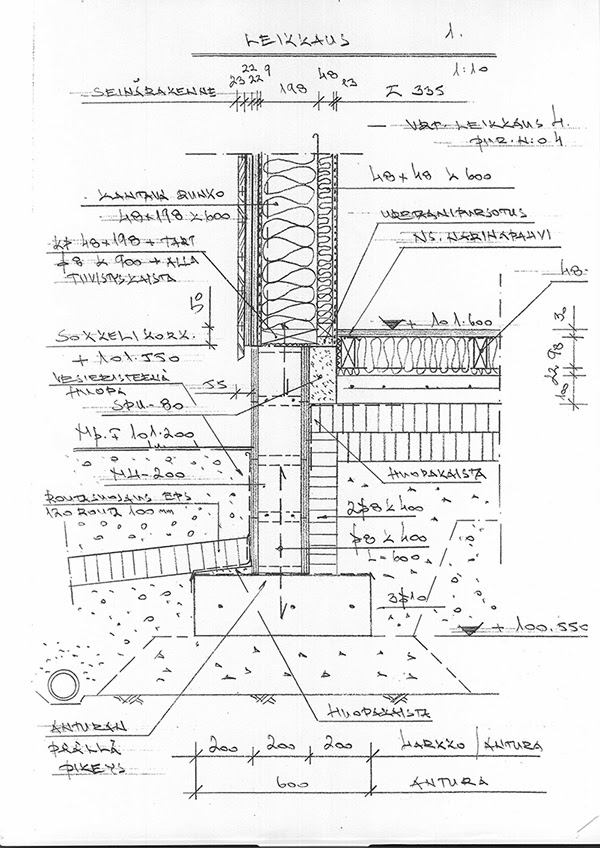 LEIKKAUS 1.
1:10
SEINÄRAKENNE 23 22 22 9 198 48 13 Σ 335
VRT. LEIKKAUS 4.
PIIR. N:O 4
KANTAVA RUNKO
48x198 K 600
48x48 K 600
KP 48x198 + TART
ø8 K 900 + ALLA
TIIVISTYSKAISTA
URETAANIPURSOTUS
NS. NARINAPAHVI
48-
+ 101.600
SOKKELIKORK.
+ 101.550
30
22 98
100
VESIERISTEENÄ
HUOPA
55
SPU-80
MP. ∓ 101.200
HUOPAKAISTA
MH-200
ROUTASUOJAUS EPS
120 ROUTA 100 mm
2ø8 K 400
ø8 K 400
L=600
3ø10
+ 100.550
HUOPAKAISTA
ANTURAN
PÄÄLLÄ
PIKEYS
200 200 200 HARKKO/ANTURA
600 ANTURA